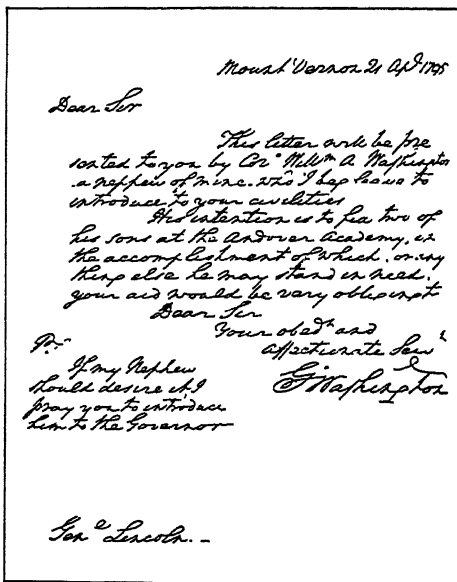 Mount Vernon 21 Apl 1795
Dear Sir
This letter will be pre
sented to you by Colo Willm A Washington
a nephew of mine. who I beg leave to
introduce to your civilities
His intention is to fix two of
his sons at the Andover Academy, in
the accomplishment of which, or any
thing else he may stand in need,
your aid would be very obliging to
Dear Sir
Your obedt and
Affectionate Servt
Go Washington
P.S.
If my Nephew
should desire it I
pray you to introduce
him to the Governor
Genl Lincoln. -